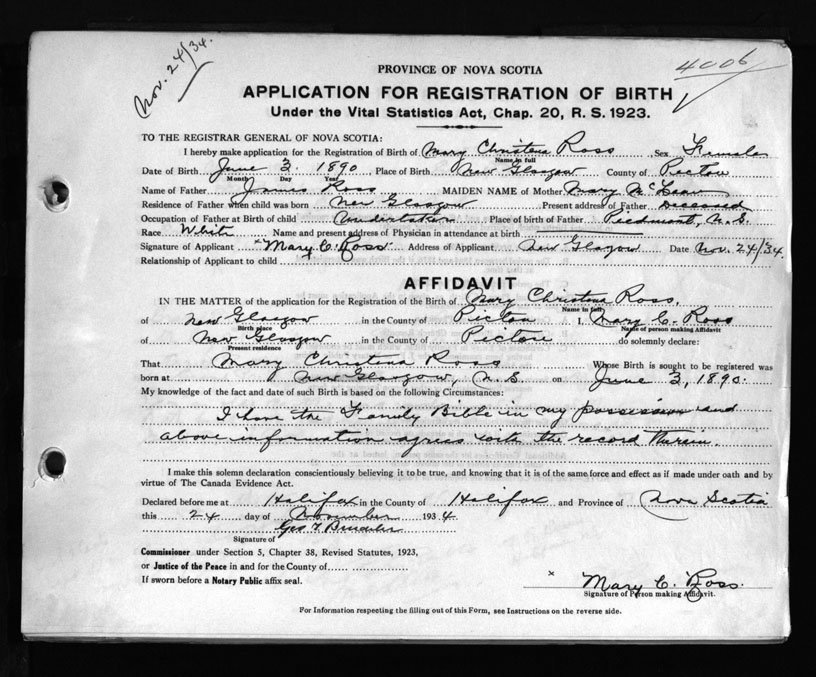 Nov. 24/34.
4006
PROVINCE OF NOVA SCOTIA
APPLICATION FOR REGISTRATION OF BIRTH
Under the Vital Statistics Act, Chap. 20, R. S. 1923.
TO THE REGISTRAR GENERAL OF NOVA SCOTIA:
I hereby make application for the Registration of Birth of Mary Christena Ross Sex Female
Name in full
Date of Birth June 3. 1890 Place of Birth New Glasgow County of Pictou
Month Day Year
Name of Father James Ross MAIDEN NAME of Mother Mary McLean
Residence of Father when child was born New Glasgow Present address of Father Deceased
Occupation of Father at Birth of child Undertaker Place of birth of Father Piedmont, N.S.
Race White Name and present address of Physician in attendance at birth
Signature of Applicant x Mary C. Ross Address of Applicant New Glasgow Date Nov. 24/34.
Relationship of Applicant to child
AFFIDAVIT
IN THE MATTER of the application for the Registration of the Birth of Mary Christena Ross,
Name in full
of New Glasgow in the County of Pictou I, Mary C. Ross
Birth place Name of person making Affidavit
of New Glasgow in the County of Pictou do solemnly declare:
Present residence
That Mary Christena Ross Whose Birth is sought to be registered was
born at New Glasgow, N.S. on June 3, 1890.
My knowledge of the fact and date of such Birth is based on the following Circumstances:
I have the Family Bible in my possession and
above information agrees with the record therein.
I make this solemn declaration conscientiously believing it to be true, and knowing that it is of the same force and effect as if made under oath and by
virtue of The Canada Evidence Act.
Declared before me at Halifax in the County of Halifax and Province of Nova Scotia
this 24 day of November 1934
Geo. T.
Signature of
Commissioner under Section 5, Chapter 38, Revised Statutes, 1923,
or Justice of the Peace in and for the County of
If sworn before a Notary Public affix seal.
x Mary C. Ross.
Signature of Person making Affidavit.
For Information respecting the filling out of this Form, see Instructions on the reverse side.